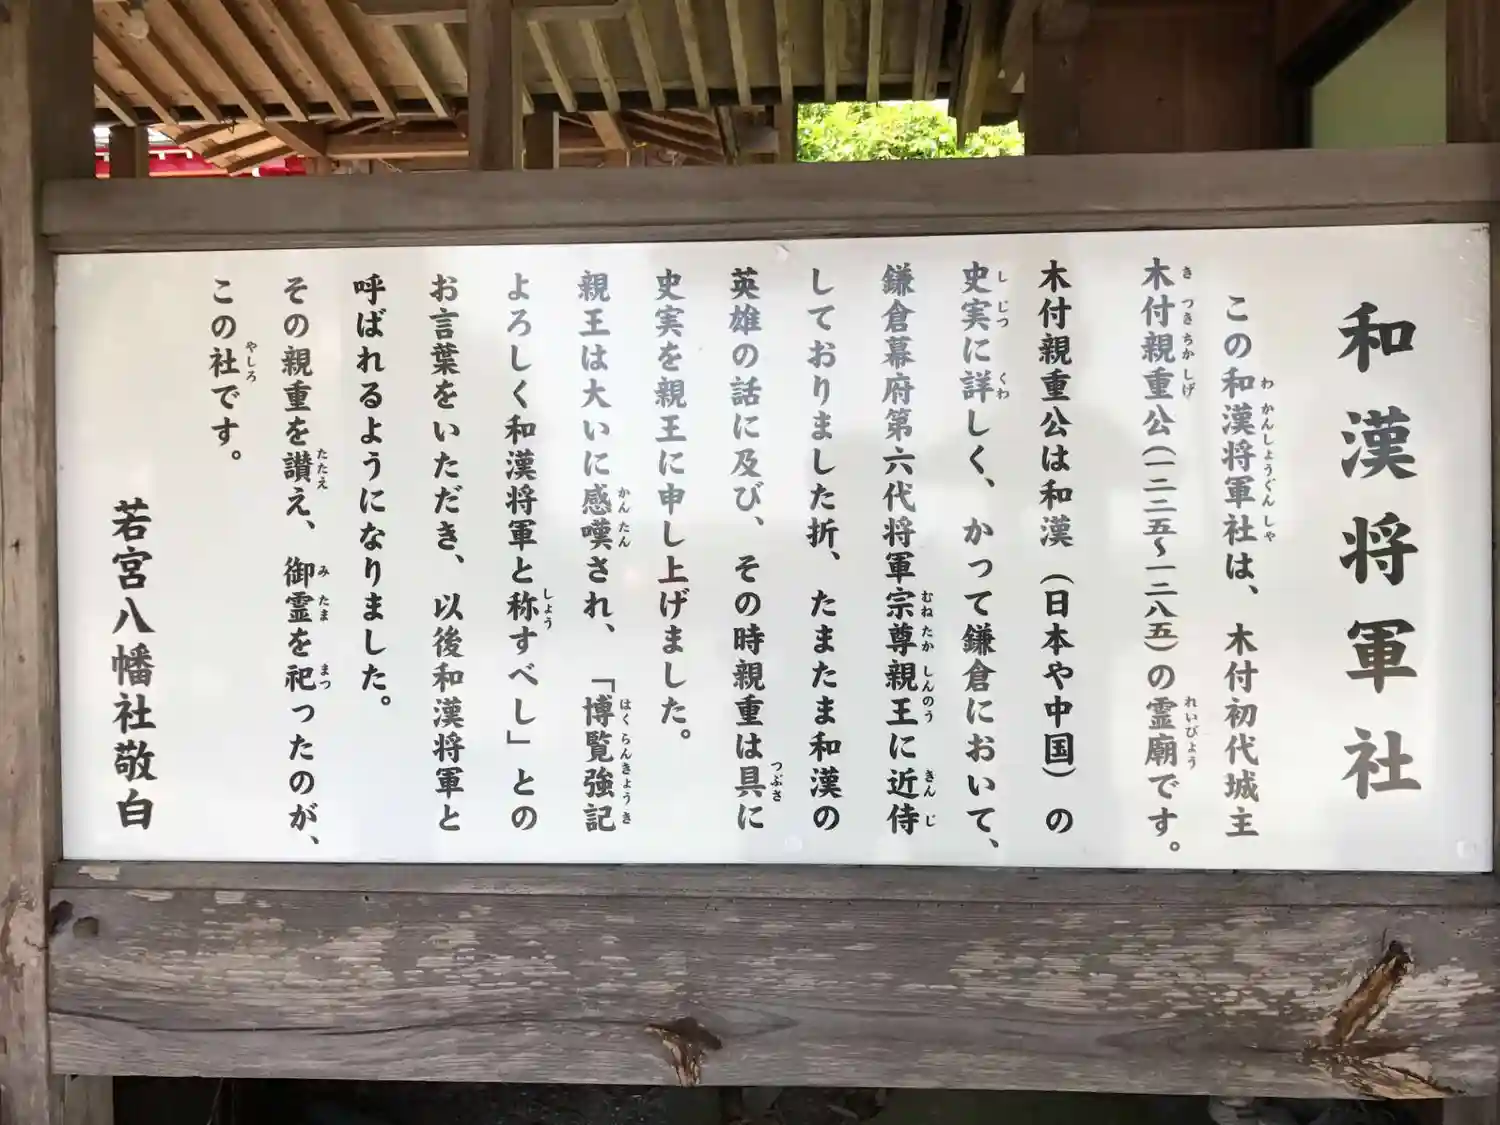 和漢将軍社
この和漢将軍社は、木付初代城主
木付親重公(一二二五〜一二八五)の霊廟です。
木付親重公は和漢(日本や中国)の
史実に詳しく、かって鎌倉において、
鎌倉幕府第六代将軍宗尊親王に近侍
しておりました折、たまたま和漢の
英雄の話に及び、その時親重は具に
史実を親王に申し上げました。
親王は大いに感嘆され、「博覧強記
よろしく和漢将軍と称すべし」との
お言葉をいただき、以後和漢将軍と
呼ばれるようになりました。
その親重を讃え、御霊を祀ったのが、
この社です。
若宮八幡社敬白